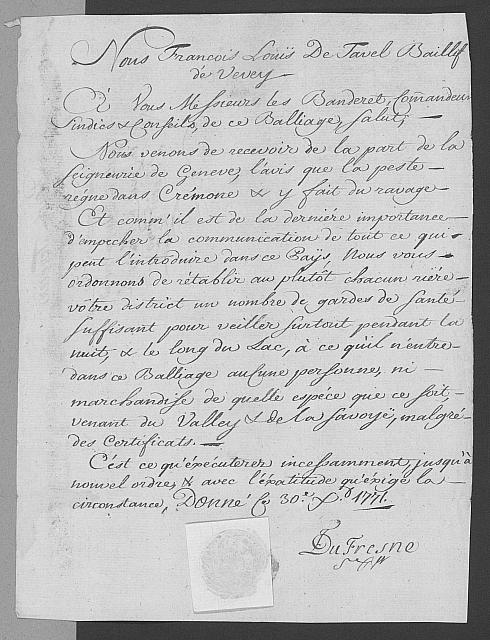 Nous François Louïs De Tavel Baillif
de Vevey
A Vous Messieurs les Banderet, Comandeur
Sindics & Conseils, de ce Balliage, salut,
Nous venons de recevoir de la part de la
seigneurie de Geneve, l'avis que la peste
régne dans Crémone & y fait du ravage
Et comm'il est de la derniére importance
d'empecher la communication de tout ce qui
peut l'introduire dans ce Païs, Nous vous
ordonnons de rétablir au plutôt chacun riére
vôtre district un nombre de gardes de santé
suffisant pour veiller surtout pendant la
nuit, & le long du Lac, à ce qu'il n'entre
dans ce Balliage aucune personne, ni
marchandise de quelle espéce que ce soit,
venant du Valley & de la Savoye, malgré
des Certificats.
C'est ce qu'éxécuterez incessamment, jusqu'à
nouvel ordre, & avec l'éxatitude qu'éxige la
circonstance, Donné ce 30.e 1771.
DuFresne